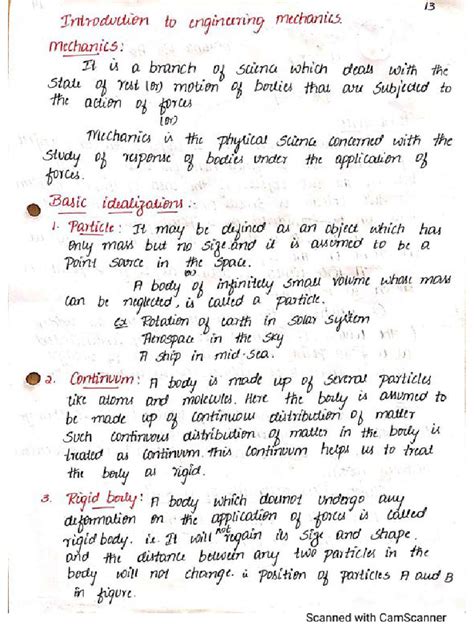 13
Introduction to engineering mechanics.
Mechanics:
It is a branch of science which deals with the
State of rest (or) motion of bodies that are subjected to
the action of forces
(or)
Mechanics is the physical science concerned with the
study of response of bodies under the application of
forces.
Basic idealizations:-
1. Particle: It may be defined as an object which has
only mass but no size and it is assumed to be a
point source in the space.
(or)
A body of infinitely small volume whose mass
can be neglected, is called a particle.
Ex Rotation of earth in solar system
Aerospace in the sky
A ship in mid-sea.
2. Continuum: A body is made up of several particles
like atoms and molecules. Here the body is assumed to
be made up of continuous distribution of matter
Such continuous distribution of matter in the body is
treated as continuum. This continuum helps us to treat
the body as rigid.
3. Rigid body: A body which doesnot undergo any
deformation on the application of forces is called
rigid body. i.e. It will not regain its size and shape.
and the distance between any two particles in the
body will not change. is position of particles A and B
in figure.
Scanned with CamScanner